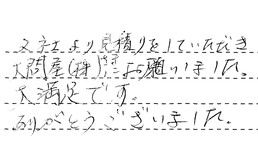 より見積りをしていただき
大問屋(株)さまにお願いしました。
大満足です。
ありがとうございました。